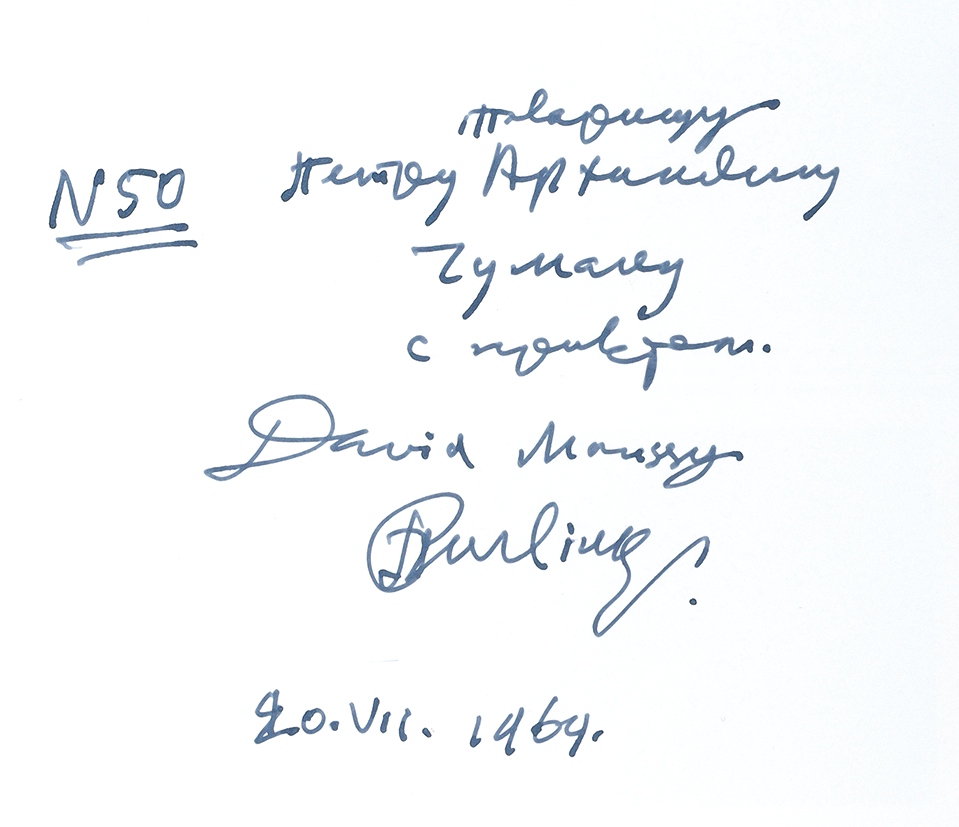 Товарищу
N50 Петру Архиповичу
Чумаку
с приветом.
David
Burliuk.
20.VII. 1964.